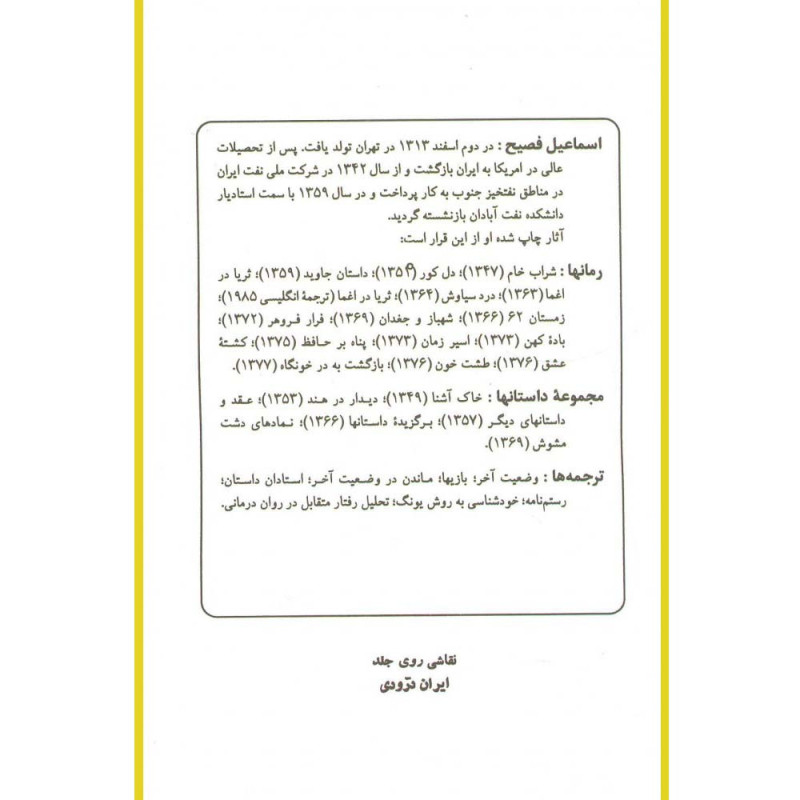 اسماعیل فصیح : در دوم اسفند ۱۳۱۳ در تهران تولد یافت. پس از تحصیلات
عالی در امریکا به ایران بازگشت و از سال ۱۳۴۲ در شرکت ملی نفت ایران
در مناطق نفتخیز جنوب به کار پرداخت و در سال ۱۳۵۹ با سمت استادیار
دانشکده نفت آبادان بازنشسته گردید.
آثار چاپ شده او از این قرار است:
رمانها : شراب خام (۱۳۴۷)؛ دل کور (۱۳۵۴)؛ داستان جاوید (۱۳۵۹)؛ ثریا در
اغما (۱۳۶۳)؛ درد سیاوش (۱۳۶۴)؛ ثریا در اغما (ترجمۀ انگلیسی ۱۹۸۵)؛
زمستان ۶۲ (۱۳۶۶)؛ شهباز و جغدان (۱۳۶۹)؛ فرار فروهر (۱۳۷۲)؛
بادۀ کهن (۱۳۷۳)؛ اسیر زمان (۱۳۷۳)؛ پناه بر حافظ (۱۳۷۵)؛ کشتۀ
عشق (۱۳۷۶)؛ طشت خون (۱۳۷۶)؛ بازگشت به در خونگاه (۱۳۷۷).
مجموعۀ داستانها : خاک آشنا (۱۳۴۹)؛ دیدار در هند (۱۳۵۳)؛ عقد و
داستانهای دیگر (۱۳۵۷)؛ برگزیدۀ داستانها (۱۳۶۶)؛ نمادهای دشت
مشوش (۱۳۶۹).
ترجمه‌ها : وضعیت آخر؛ بازیها؛ ماندن در وضعیت آخر؛ استادان داستان؛
رستم‌نامه؛ خودشناسی به روش یونگ؛ تحلیل رفتار متقابل در روان درمانی.
نقاشی روی جلد
ایران درّودی